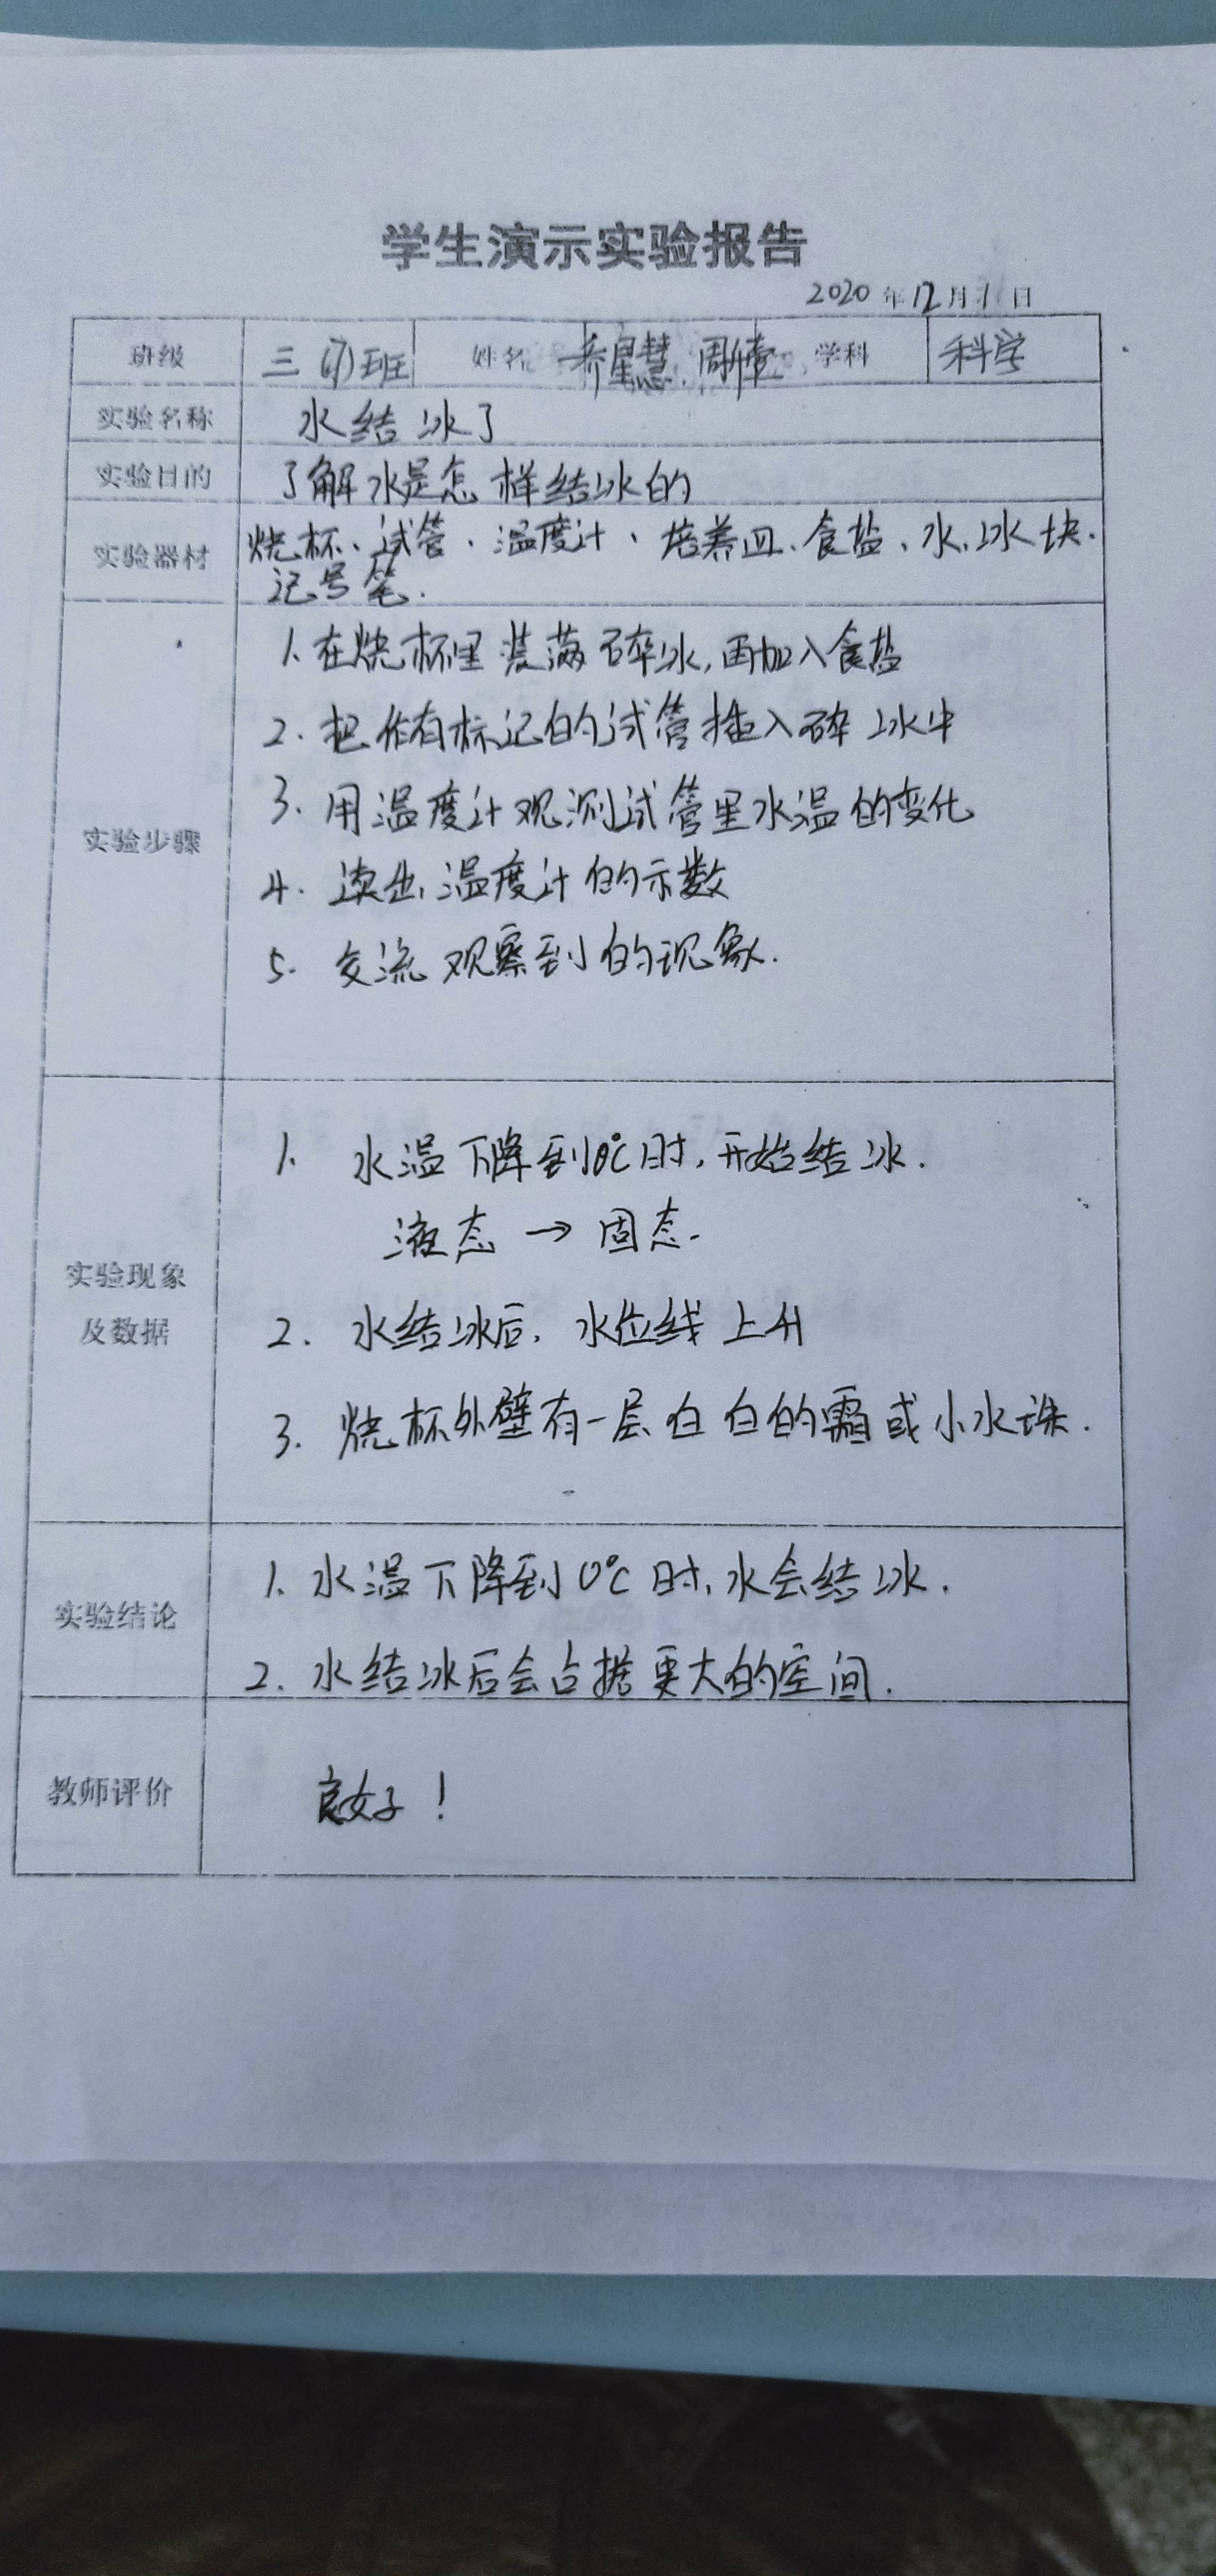 学生演示实验报告
2020 年 12 月 日
班级 三(7)班 姓名 星慧、周 学科 科学
实验名称 水结冰了
实验目的 了解水是怎样结冰的
实验器材 烧杯、试管、温度计、培养皿、食盐、水、冰块、
记号笔.
1. 在烧杯里装满碎冰,再加入食盐
2. 把作有标记的试管插入碎冰中
3. 用温度计观测试管里水温的变化
实验步骤
4. 读出温度计的示数
5. 交流观察到的现象.
1. 水温下降到0℃时,开始结冰.
液态 → 固态.
实验现象
及数据
2. 水结冰后,水位线上升
3. 烧杯外壁有一层白白的霜或小水珠.
实验结论
1. 水温下降到0℃时,水会结冰.
2. 水结冰后会占据更大的空间.
教师评价 良好!